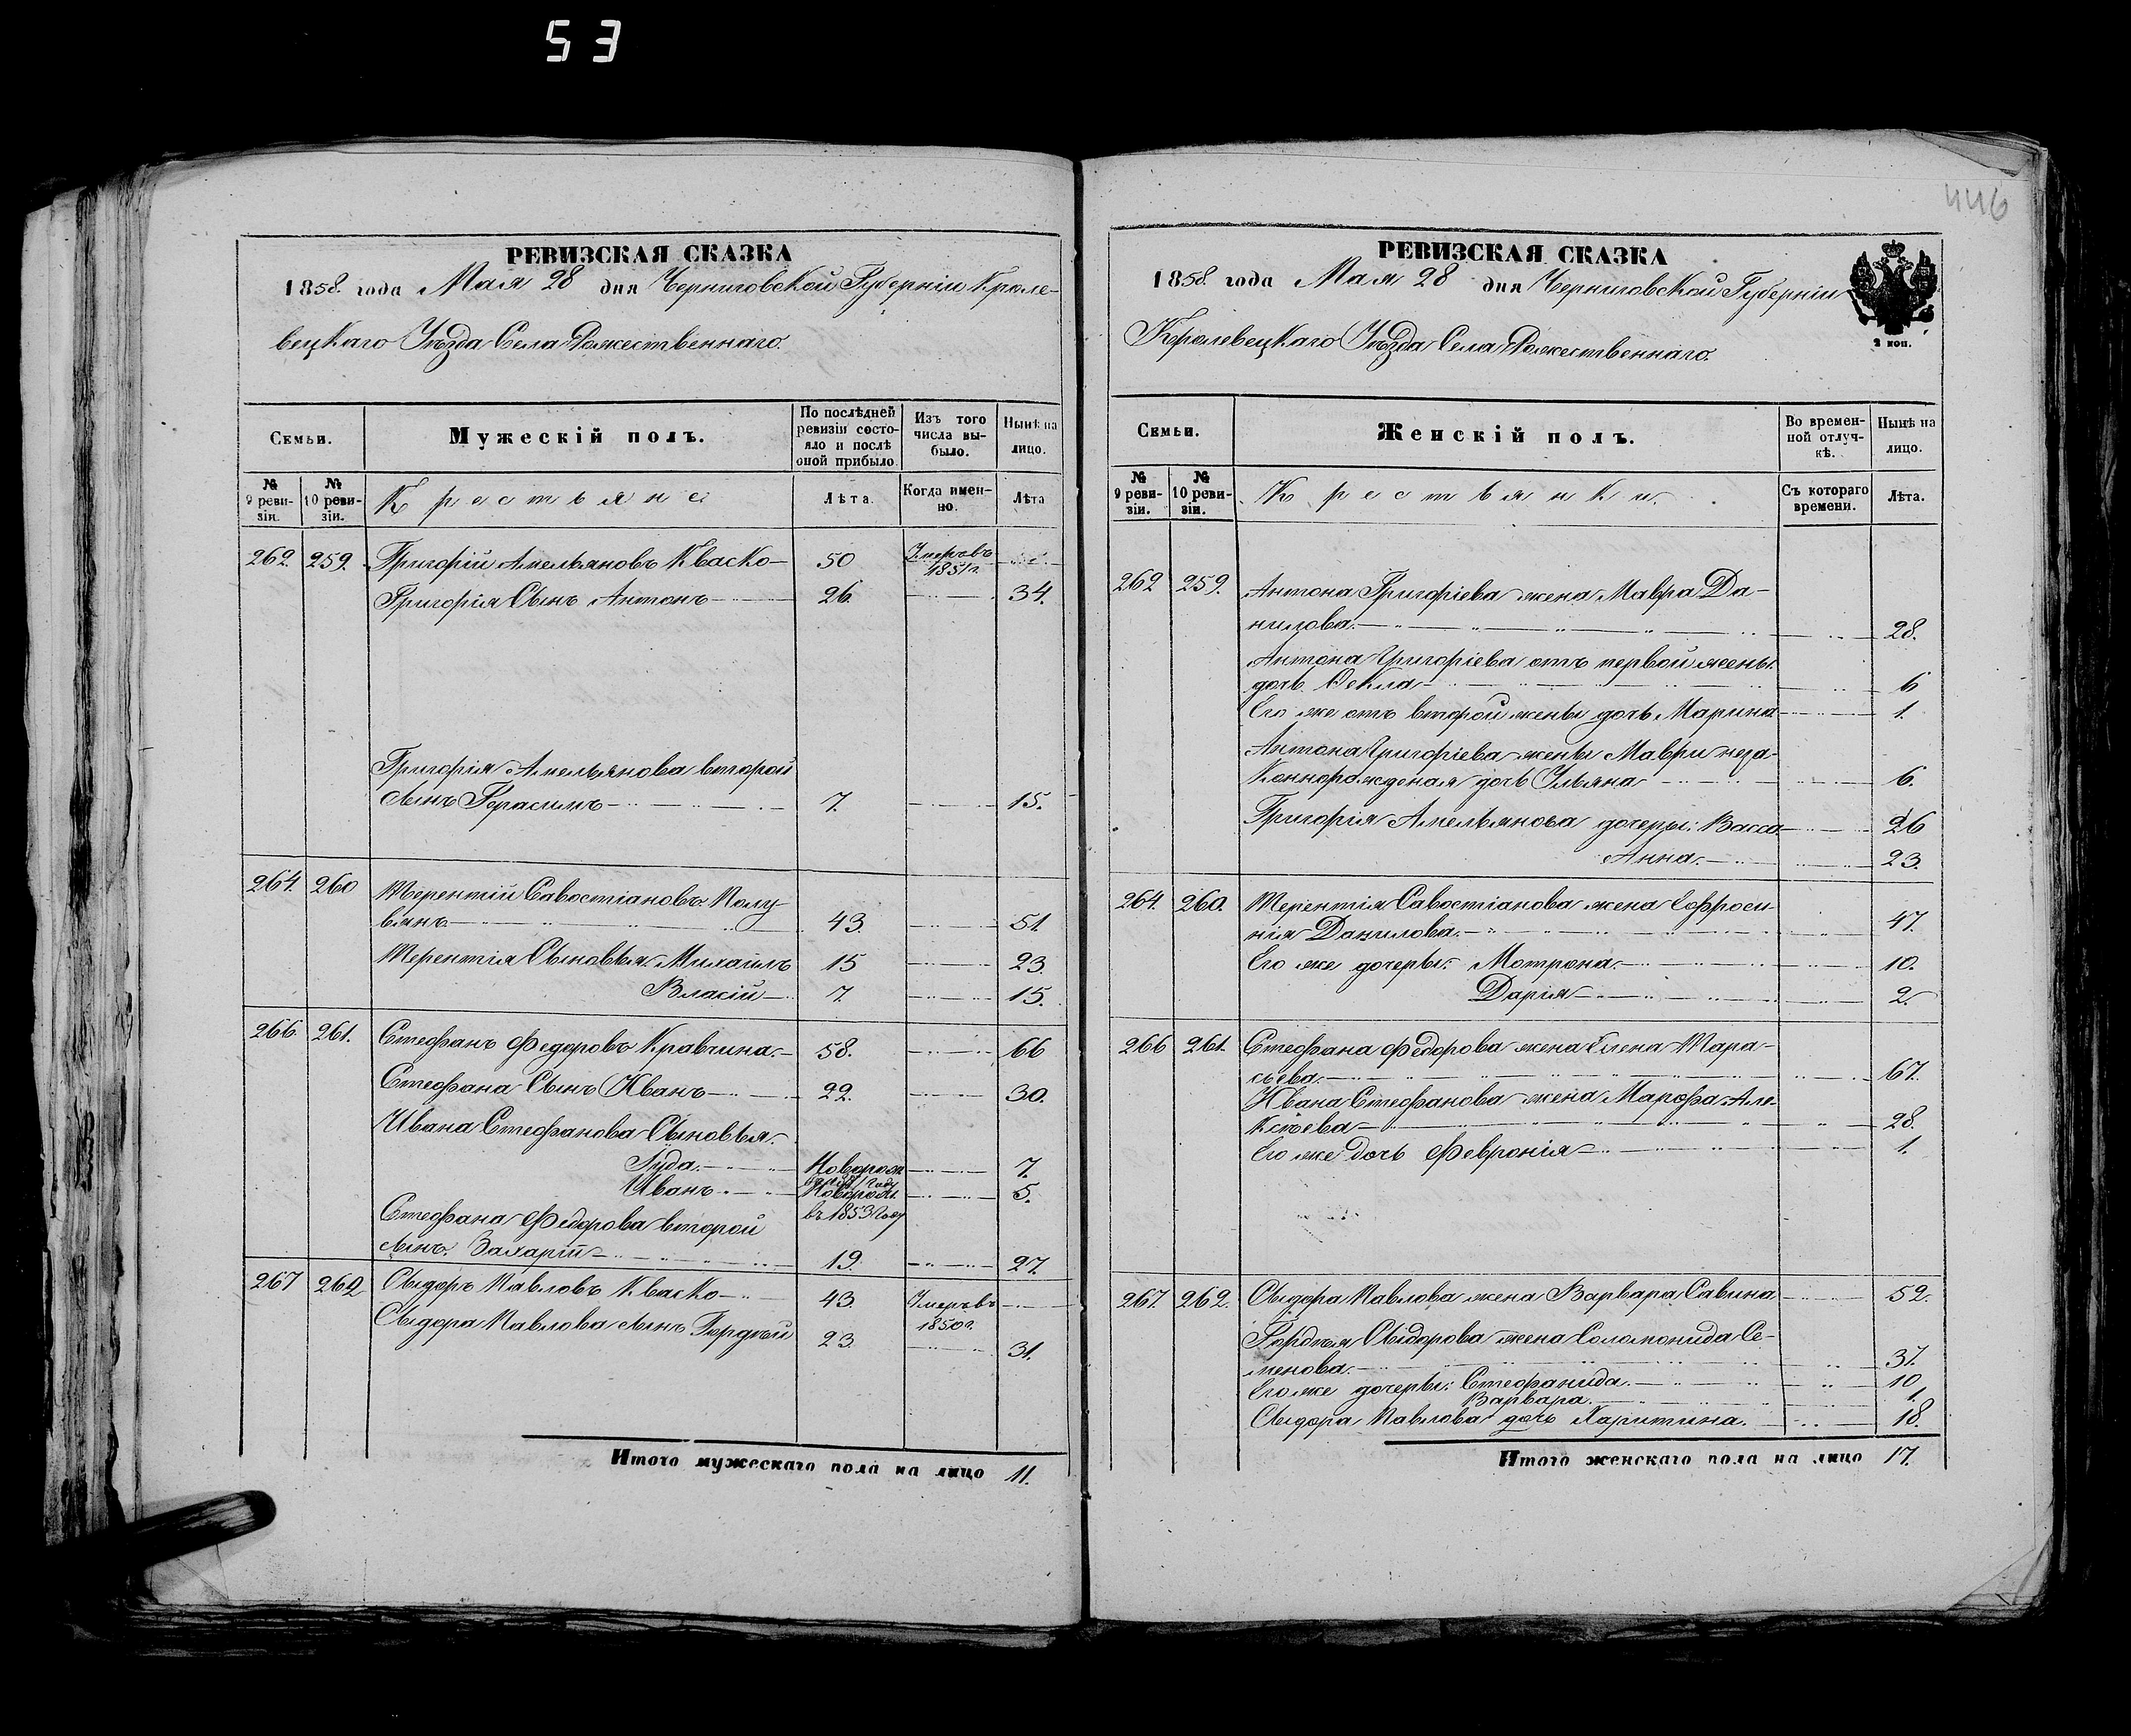 53
446
РЕВИЗСКАЯ СКАЗКА
1858. года Мая 28 дня Черниговской Губерніи Кроле-
вецкаго Уѣзда Села Рожественнаго.
Семьи.
Мужескій полъ.
По послѣдней ревизіи состояло и послѣ оной прибыло.
Изъ того числа выбыло.
Нынѣ на лицо.
№ 9 ревизіи.
№ 10 ревизіи.
Крестьяне
Лѣта.
Когда именно.
Лѣта
262. 259. Григорій Амельяновъ Кваско 50 Умеръ въ 1851 г.
Григорія Сынъ Антонъ 26. 34.
Григорія Амельянова второй
сынъ Герасимъ 7. 15.
264. 260 Терентій Савостіановъ Полу
вянъ 43. 51.
Терентія Сыновья: Михаилъ 15 23.
Власій 7. 15.
266. 261. Стефанъ Федоровъ Кравчина. 58. 66
Стефана Сынъ Иванъ 22. 30.
Ивана Стефанова Сыновья:
Іуда. Новорож 7.
Иванъ. Новорож. 5.
въ 1853 году
Стефана Федорова второй
сынъ Захарій 19. 27.
267 262 Сыдоръ Павловъ Кваско 43. Умеръ въ 1850 г.
Сыдора Павлова сынъ Гордѣй 23. 31.
Итого мужескаго пола на лицо 11.
РЕВИЗСКАЯ СКАЗКА
1858. года Мая 28 дня Черниговской Губерніи
Кролевецкаго Уѣзда Села Рожественнаго.
2 коп.
Семьи.
Женскій полъ.
Во временной отлучкѣ.
Нынѣ на лицо.
№ 9 ревизіи.
№ 10 ревизіи.
Крестьянки.
Съ котораго времени.
Лѣта.
262 259. Антона Григоріева жена Мавра Да-
нилова. 28.
Антона Григоріева отъ первой жены
дочь Фекла 6
Его же отъ второй жены дочь Марина 1.
Антона Григоріева жены Маври неза-
коннорожденая дочь Ульяна 6.
Григорія Амельянова дочеры: Васса 26
Анна. 23.
264. 260. Терентія Савостіанова жена Ефроси-
нія Данилова. 47.
Его же дочеры: Мотрона. 10.
Дарія 2.
266 261. Стефана Федорова жена Елена Тара-
сьева. 67.
Ивана Стефанова жена Марфа Але-
ксѣева 28.
Его же дочь Февронія 1.
267. 262. Сыдора Павлова жена Варвара Савина 52.
Гордѣя Сыдорова жена Соломонида Се-
менова. 37.
Его же дочеры: Стефанида. 10.
Варвара. 1.
Сыдора Павлова дочь Харитина. 18.
Итого женскаго пола на лицо 17.